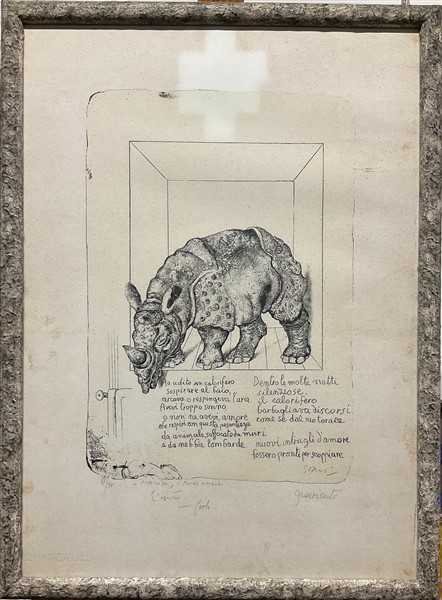 Ho udito un calorifero
sospirare al buio,
cercava o respingeva l'aria.
Avevi troppo sonno,
o non ne avevi, amore
che respiri con questa pesantezza
da animale soffocato da muri
e da nebbie lombarde
Dentro le molte notti
silenziose,
il calorifero
barbugliava discorsi
come se dal suo torace
nuovi intrugli d'amore
fossero pronti per scoppiare